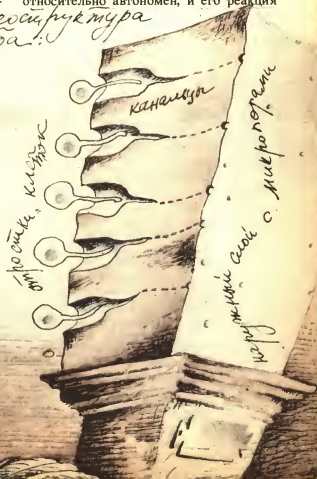 относительно автономен, и его реакция
структура
канальцы
отростки клеток
наружный слой с микропорами